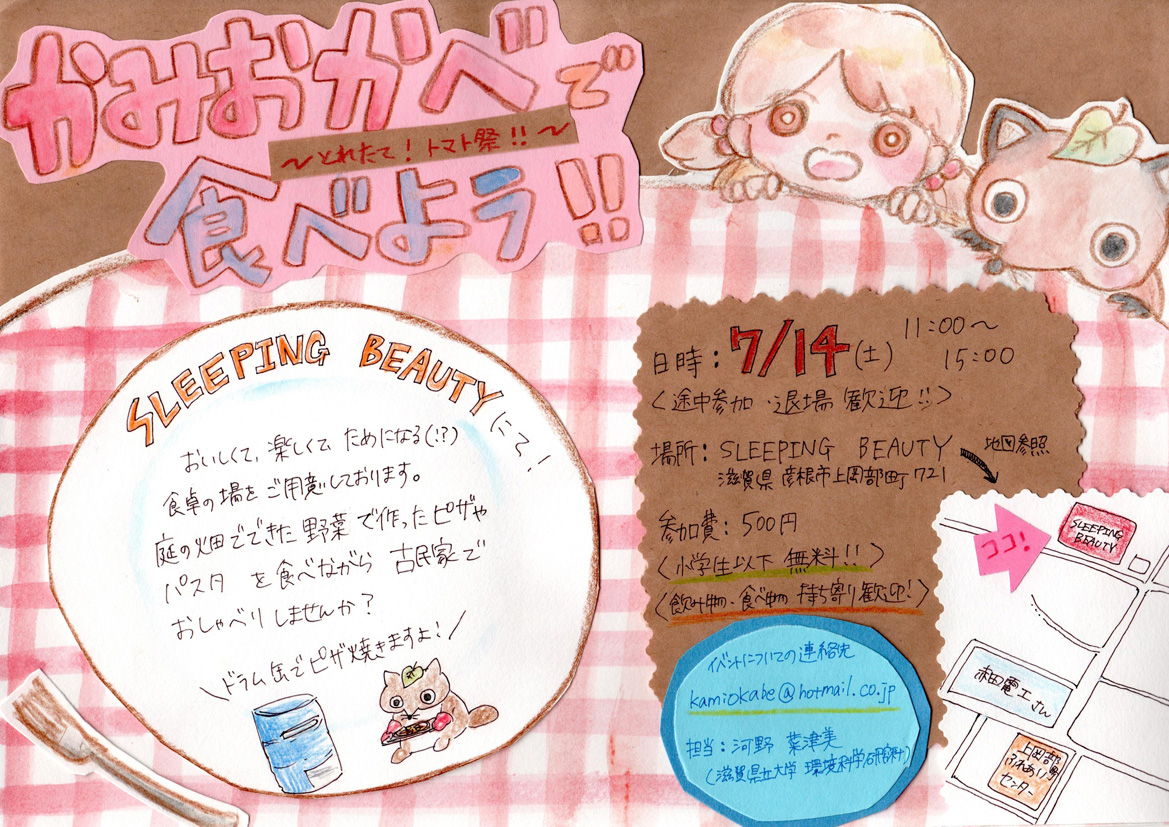 かみおかべで
～とれたて！トマト祭!!～
食べよう!!
SLEEPING BEAUTYにて！
おいしくて、楽しくて ためになる(!?)
食卓の場をご用意しております。
庭の畑でできた野菜で作ったピザや
パスタ を食べながら 古民家で
おしゃべりしませんか？
\ドラム缶でピザ焼きますよ！/
日時：7/14(土) 11:00～
15:00
〈途中参加・退場 歓迎!!〉
場所：SLEEPING BEAUTY
地図参照
滋賀県彦根市上岡部町721
参加費：500円
〈小学生以下 無料!!〉
〈飲み物・食べ物 持ち寄り歓迎！〉
イベントについての連絡先
kamiokabe@hotmail.co.jp
担当：河野 菜津美
(滋賀県立大学 環境科学研究科)
ココ！
SLEEPING
BEAUTY
電工さん
上岡部
ふれあい
センター